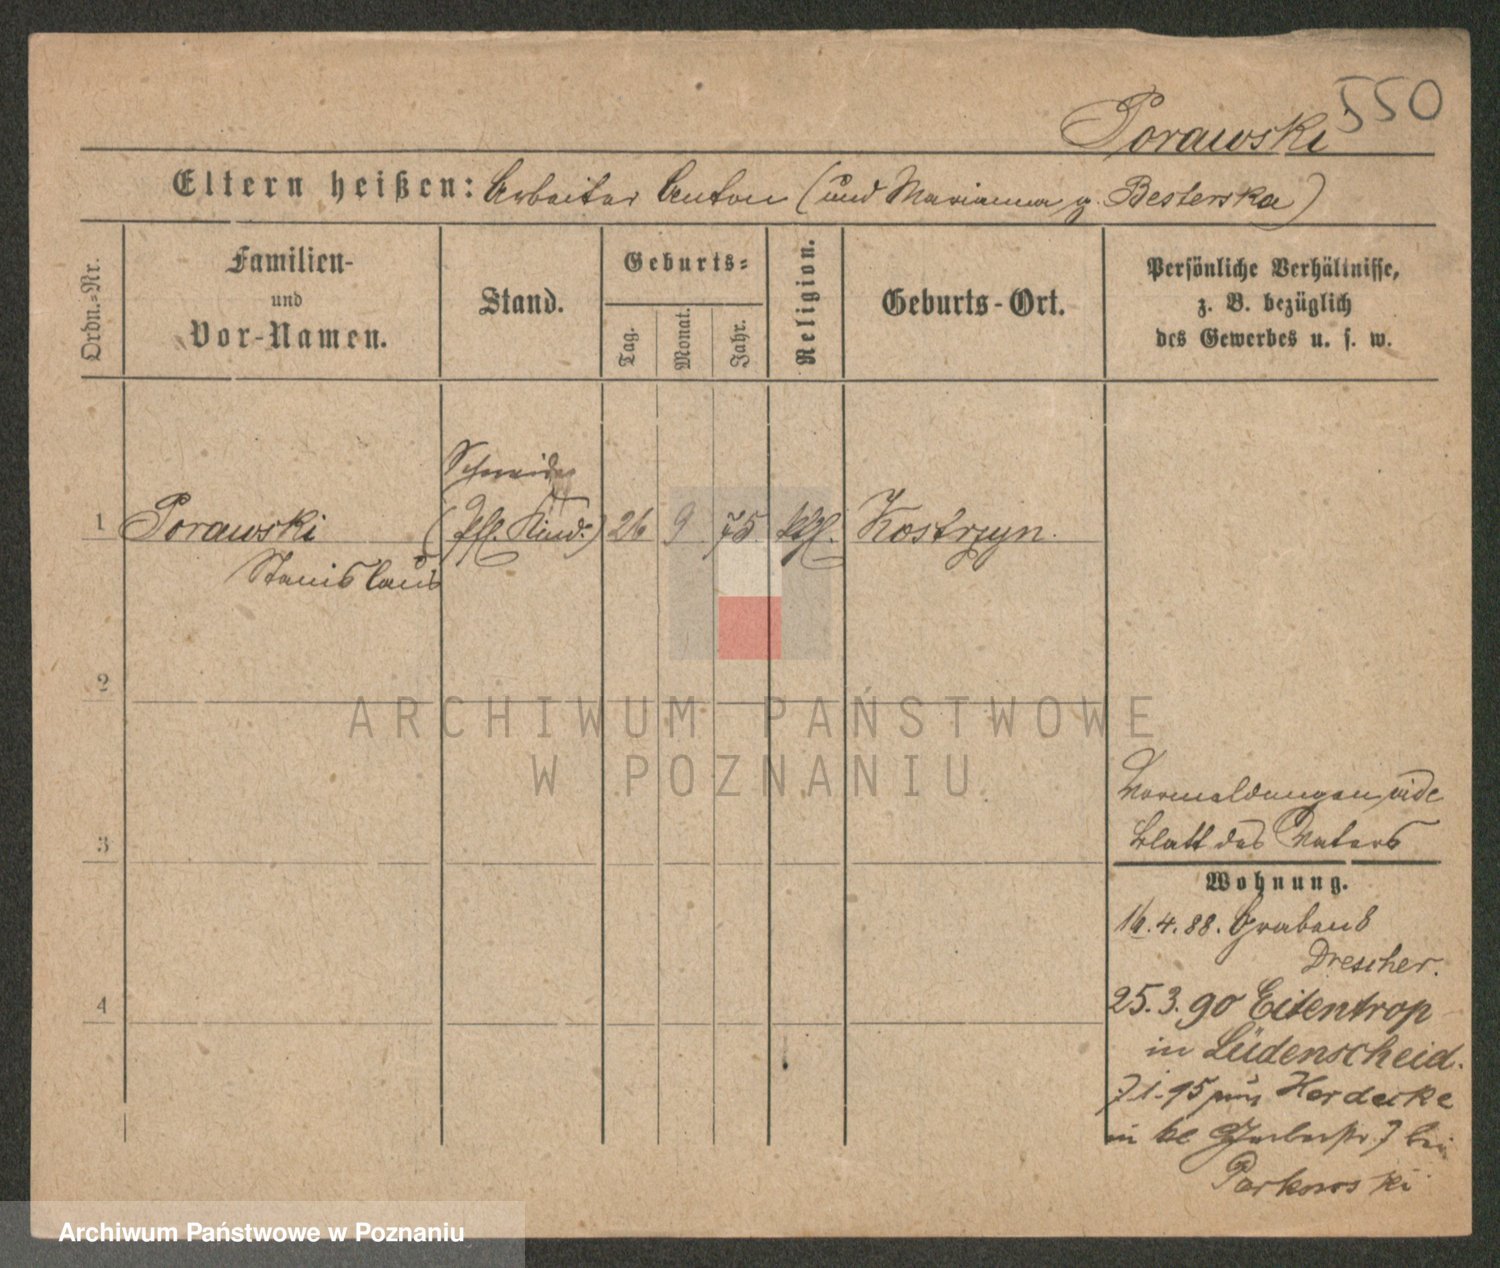 550
Porawski
Eltern heißen: Arbeiter Anton (und Marianna g. Besterska)
Ordn.-Nr.
Familien-
und
Vor-Namen.
Stand.
Geburts-
Tag.
Monat.
Jahr.
Religion.
Geburts-Ort.
Persönliche Verhältnisse,
z. B. bezüglich
des Gewerbes u. s. w.
Schneider
1 Porawski (Kind.) 26 9 75 kthl. Kostrzyn.
Stanislaus
2
ARCHIWUM PAŃSTWOWE
W POZNANIU
Vormeldungen vide
3 Blatt des Vaters
Wohnung.
16.4.88. Graben 8
Drescher.
4 25.3.90 Eitentrop
in Lüdenscheid.
7.1.95 Herdecke
in kl 7 bei
Parkowski
Archiwum Państwowe w Poznaniu